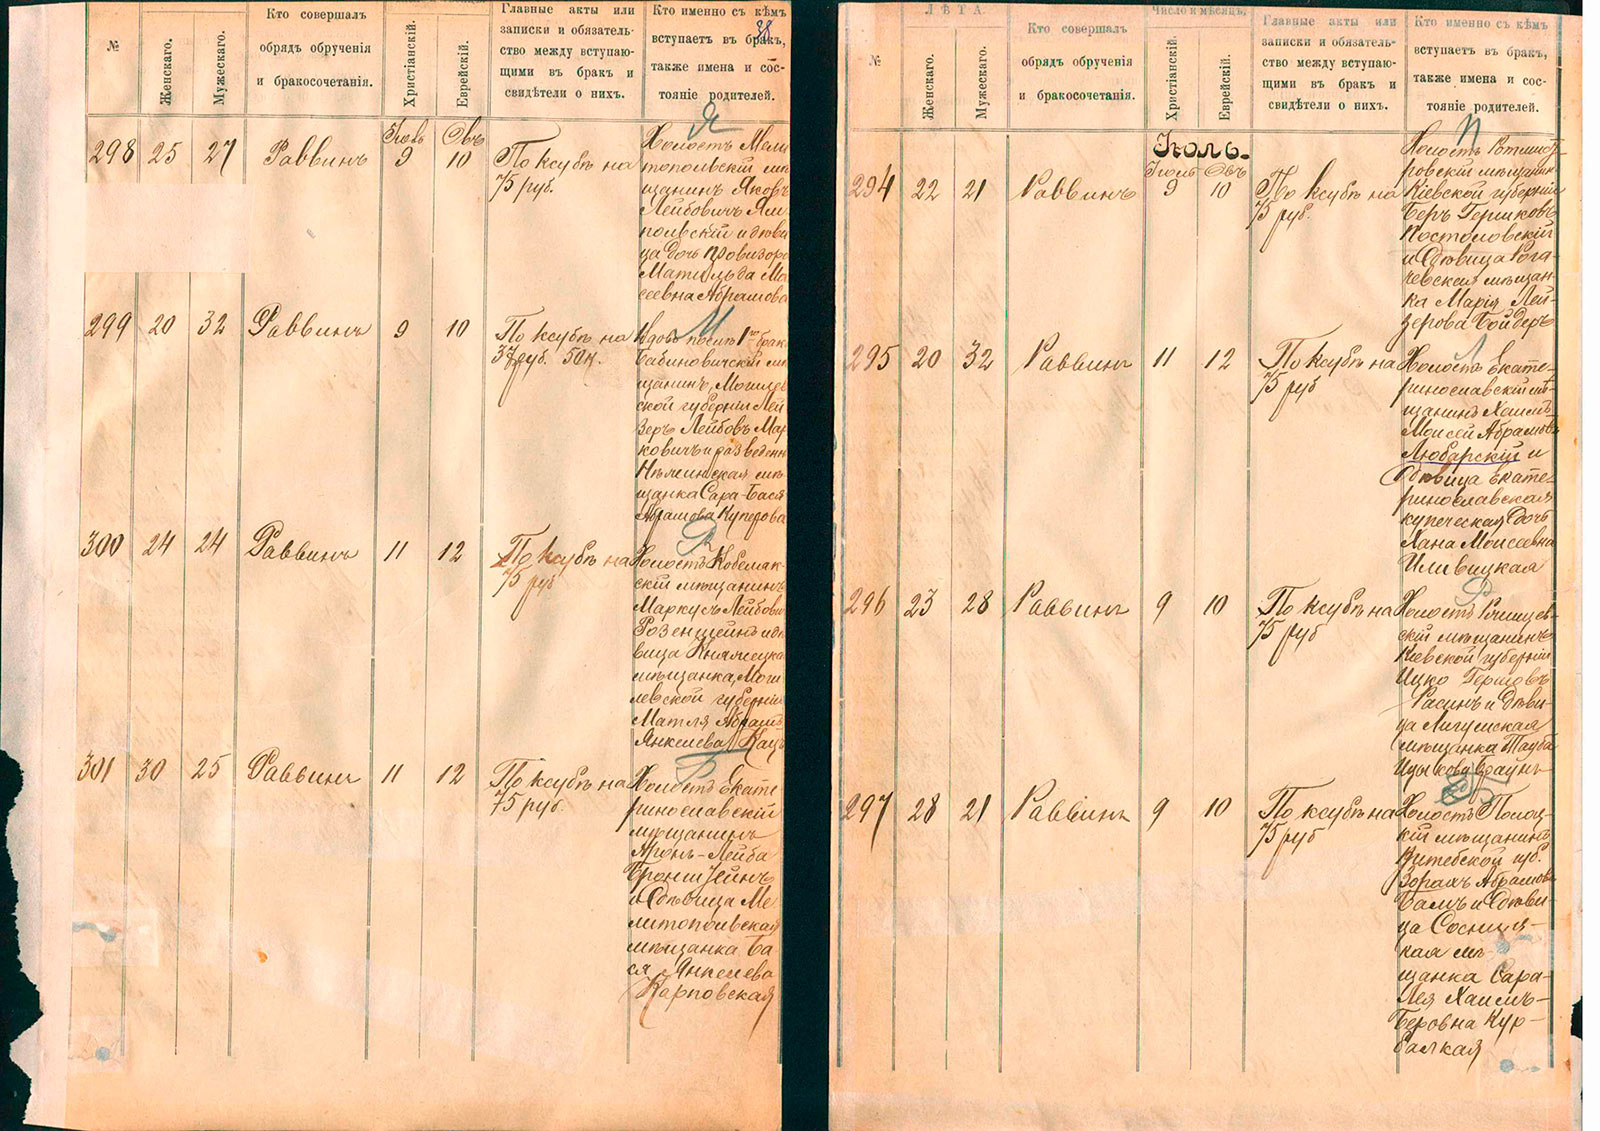 №
Женскаго.
Мужескаго.
Кто совершалъ
обрядъ обрученія
и бракосочетанія.
Христіанскій.
Еврейскій.
Главные акты или
записки и обязатель-
ство между вступаю-
щими въ бракъ и
свидѣтели о нихъ.
Кто именно съ кѣмъ
вступаетъ въ бракъ,
также имена и сос-
тояніе родителей.
38
Я
298 25 27 Раввинъ 9 10
По ксубѣ на
75 руб.
Холостъ Мели
топольскій мѣ
щанинъ Яковъ
Лейбовичъ Ям
польскій и дѣви
ца дочь провизора
Матильда Мо
сеевна Абрамова
М
299 20 32 Раввинъ 9 10
По ксубѣ на
37 руб. 50 к.
Вдовъ послѣ 1го брака
Бабиновичскій мѣ
щанинъ, Могилев
ской губерніи Лей
зеръ Лейбовъ Мар
ковичъ и разведенн
Нѣжинская мѣ
щанка Сара-Бася
Абрамова Куперова
Р
300 24 24 Раввинъ 11 12
По ксубѣ на
75 руб
Холостъ Кобеляк-
скій мѣщанинъ
Маркусъ Лейбовъ
Розенштейнъ и дѣ
вица Княжецка
мѣщанка, Моги
левской губерніи
Матля Абрамъ
Янкелева Кацъ
Б
301 30 25 Раввинъ 11 12
По ксубѣ на
75 руб.
Холостъ Екате
ринославскій
мѣщанинъ
Аронъ-Лейба
Бронштейнъ
и дѣвица Ме
литопольская
мѣщанка Ба
ся Янкелева
Карповская
ЛѢТА.
Число и мѣсяцъ.
№
Женскаго.
Мужескаго.
Кто совершалъ
обрядъ обрученія
и бракосочетанія.
Христіанскій.
Еврейскій.
Главные акты или
записки и обязатель-
ство между вступаю-
щими въ бракъ и
свидѣтели о нихъ.
Кто именно съ кѣмъ
вступаетъ въ бракъ,
также имена и сос-
тояніе родителей.
Іюль.
П
294 22 21 Раввинъ 9 10
По ксубѣ на
75 руб.
Холостъ Ротмист
ровскій мѣщанин
Кіевской губерніи
Беръ Гершковъ
Постоловскій
и дѣвица Рога-
чевская мѣщан-
ка Марія Лей-
зерова Бойдеръ
Л
295 20 32 Раввинъ 11 12
По ксубѣ на
75 руб
Холостъ Екате-
ринославскій мѣ-
щанинъ Хаимъ-
Моисей Абрамовъ
Любарскій и
дѣвица Екате-
ринославская
купеческая дочь
Хана Моисеевна
Иливицкая
Р
296 23 28 Раввинъ 9 10
По ксубѣ на
75 руб
Холостъ Ржищев-
скій мѣщанинъ
Кіевской губерніи
Ицко Гершовъ
Расинъ и дѣви-
ца Лигумская
мѣщанка Тауба
Ицыкова Браунъ
297 28 21 Раввинъ 9 10
По ксубѣ на
75 руб
Холостъ Полоц-
кій мѣщанинъ
Витебской губ.
Зорахъ Абрамов
Балъ и дѣви-
ца Сосницъ-
кая мѣ-
щанка Сара-
Лея Хаимъ-
Беровна Кур-
балкая